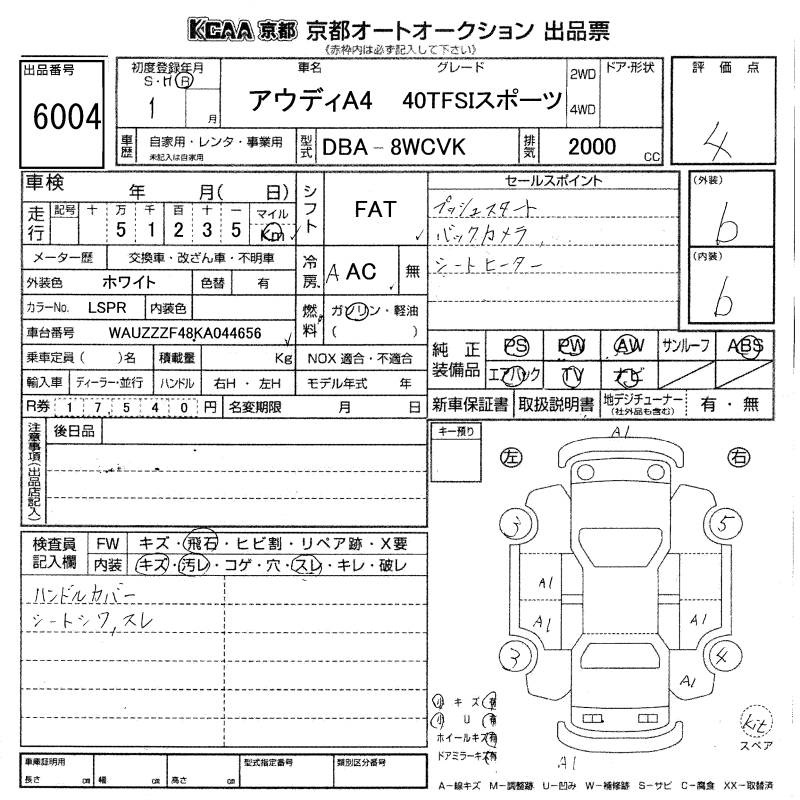 KCAA 京都 京都オートオークション 出品票
《赤枠内は必ず記入して下さい》
出品番号
6004
初度登録年月
S・H R
1 月
車名 グレード
アウディA4 40TFSIスポーツ
2WD
4WD
ドア・形状
車歴 自家用・レンタ・事業用
未記入は自家用
型式 DBA－8WCVK
排気 2000 CC
評価点
4
車検 年 月( 日)
走行 記号 十 万 千 百 十 一 マイル
5 1 2 3 5 Km
メーター歴 交換車・改ざん車・不明車
外装色 ホワイト 色替 有
カラーNo. LSPR 内装色
車台番号 WAUZZZF48KA044656
乗車定員( )名 積載量 Kg NOX 適合・不適合
輸入車 ディーラー・並行 ハンドル 右H・左H モデル年式 年
R券 17,540円 名変期限 月 日
シフト FAT
冷房 A AC 無
燃料 ガソリン・軽油
( )
セールスポイント
プッシュスタート
バックカメラ
シートヒーター
(外装)
6
(内装)
6
純正装備品 PS PW AW サンルーフ ABS
エアバック TV ナビ
新車保証書 取扱説明書 地デジチューナー(社外品も含む) 有・無
注意事項(出品店記入)
後日品
検査員記入欄
FW キズ・飛石・ヒビ割・リペア跡・X要
内装 キズ・汚レ・コゲ・穴・スレ・キレ・破レ
ハンドルカバー
シートシワ,スレ
キー預り
A1
左 右
3 5
A1
A1 A1
3 4
A1
小 キズ 有
小 U 有
ホイールキズ 有
ドアミラーキズ 有
kit
スペア
A1
車庫証明用
長さ cm 幅 cm 高さ cm
型式指定番号
類別区分番号
A－線キズ M－調整跡 U－凹み W－補修跡 S－サビ C－腐食 XX－取替済